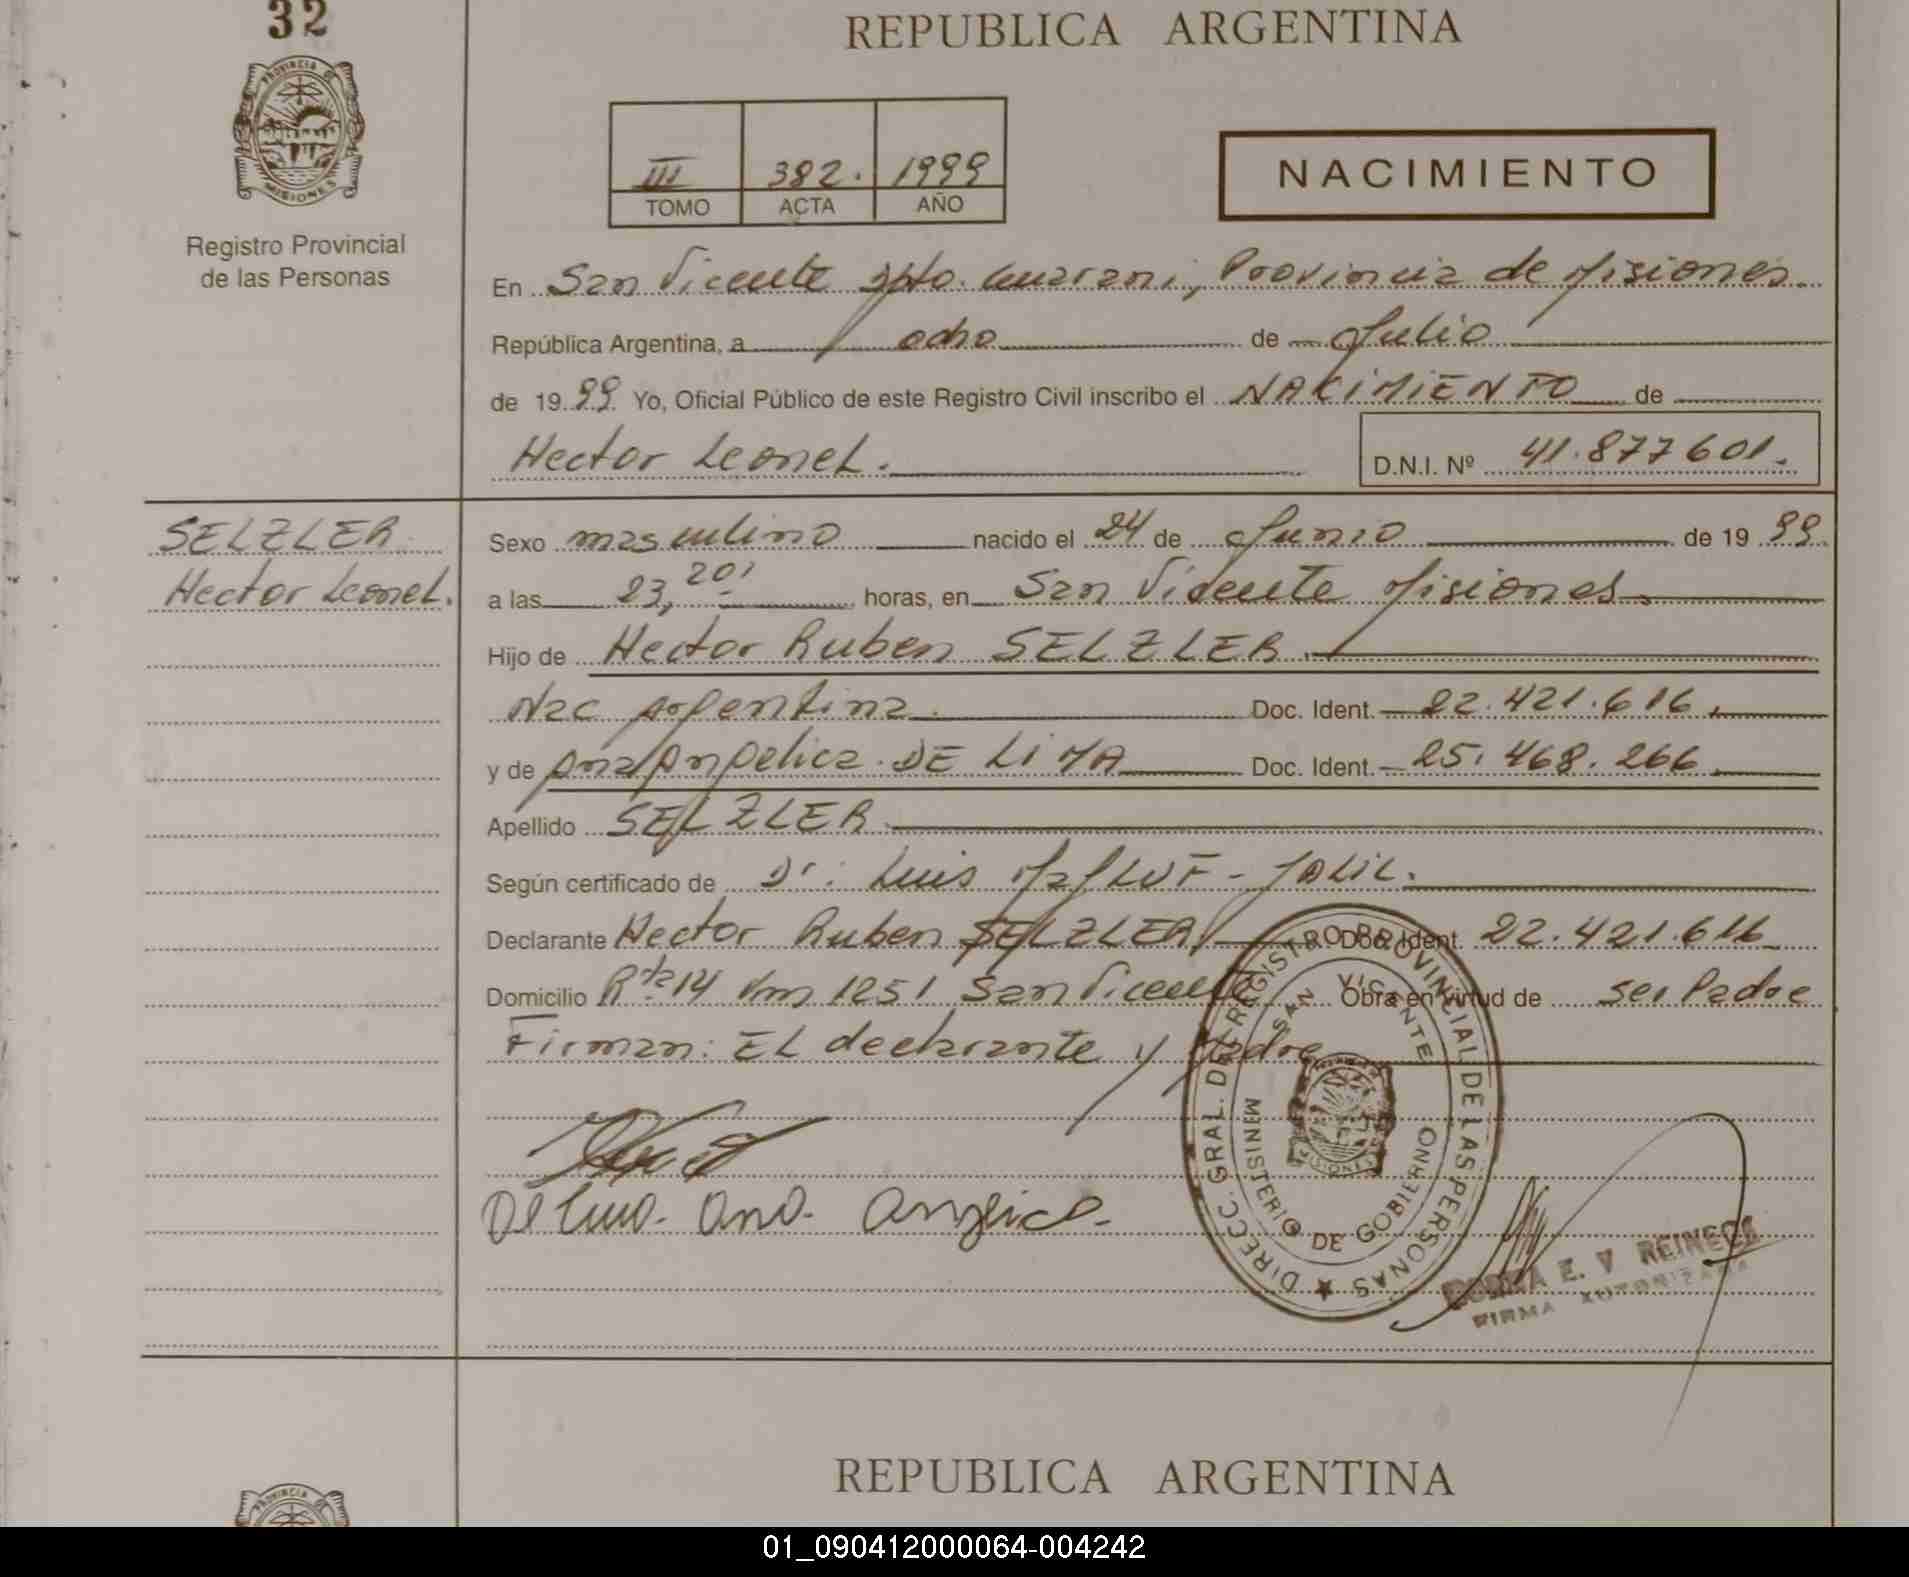 32
REPUBLICA ARGENTINA
PROVINCIA DE MISIONES
Registro Provincial
de las Personas
III 382. 1999
TOMO ACTA AÑO
NACIMIENTO
En San Vicente Dpto. Guarani, Provincia de Misiones.
República Argentina, a ocho de Julio
de 1999 Yo, Oficial Público de este Registro Civil inscribo el NACIMIENTO de
Hector Leonel. D.N.I. Nº 41.877601.
SELZLER
Hector Leonel.
Sexo masculino nacido el 24 de Junio de 1999.
a las 23,20' horas, en San Vicente Misiones.
Hijo de Hector Ruben SELZLER.
Nac Argentina. Doc. Ident. 22.421.616.
y de Ana Angelica DE LIMA Doc. Ident. 25.468.266
Apellido SELZLER
Según certificado de Dr: Luis - JALIL.
Declarante Hector Ruben SELZLER Doc. Ident. 22.421.616
Domicilio Rta 14 Km 1251 San Vicente Obra en virtud de ser Padre
Firman: EL declarante y Madre
De Lima. Ana. Angelica.
DIRECC. GRAL. DEL REGISTRO PROVINCIAL DE LAS PERSONAS
SAN VICENTE
MINISTERIO DE GOBIERNO
MISIONES
E. V REINECK
FIRMA AUTORIZADA
REPUBLICA ARGENTINA
PROVINCIA DE
01_090412000064-004242